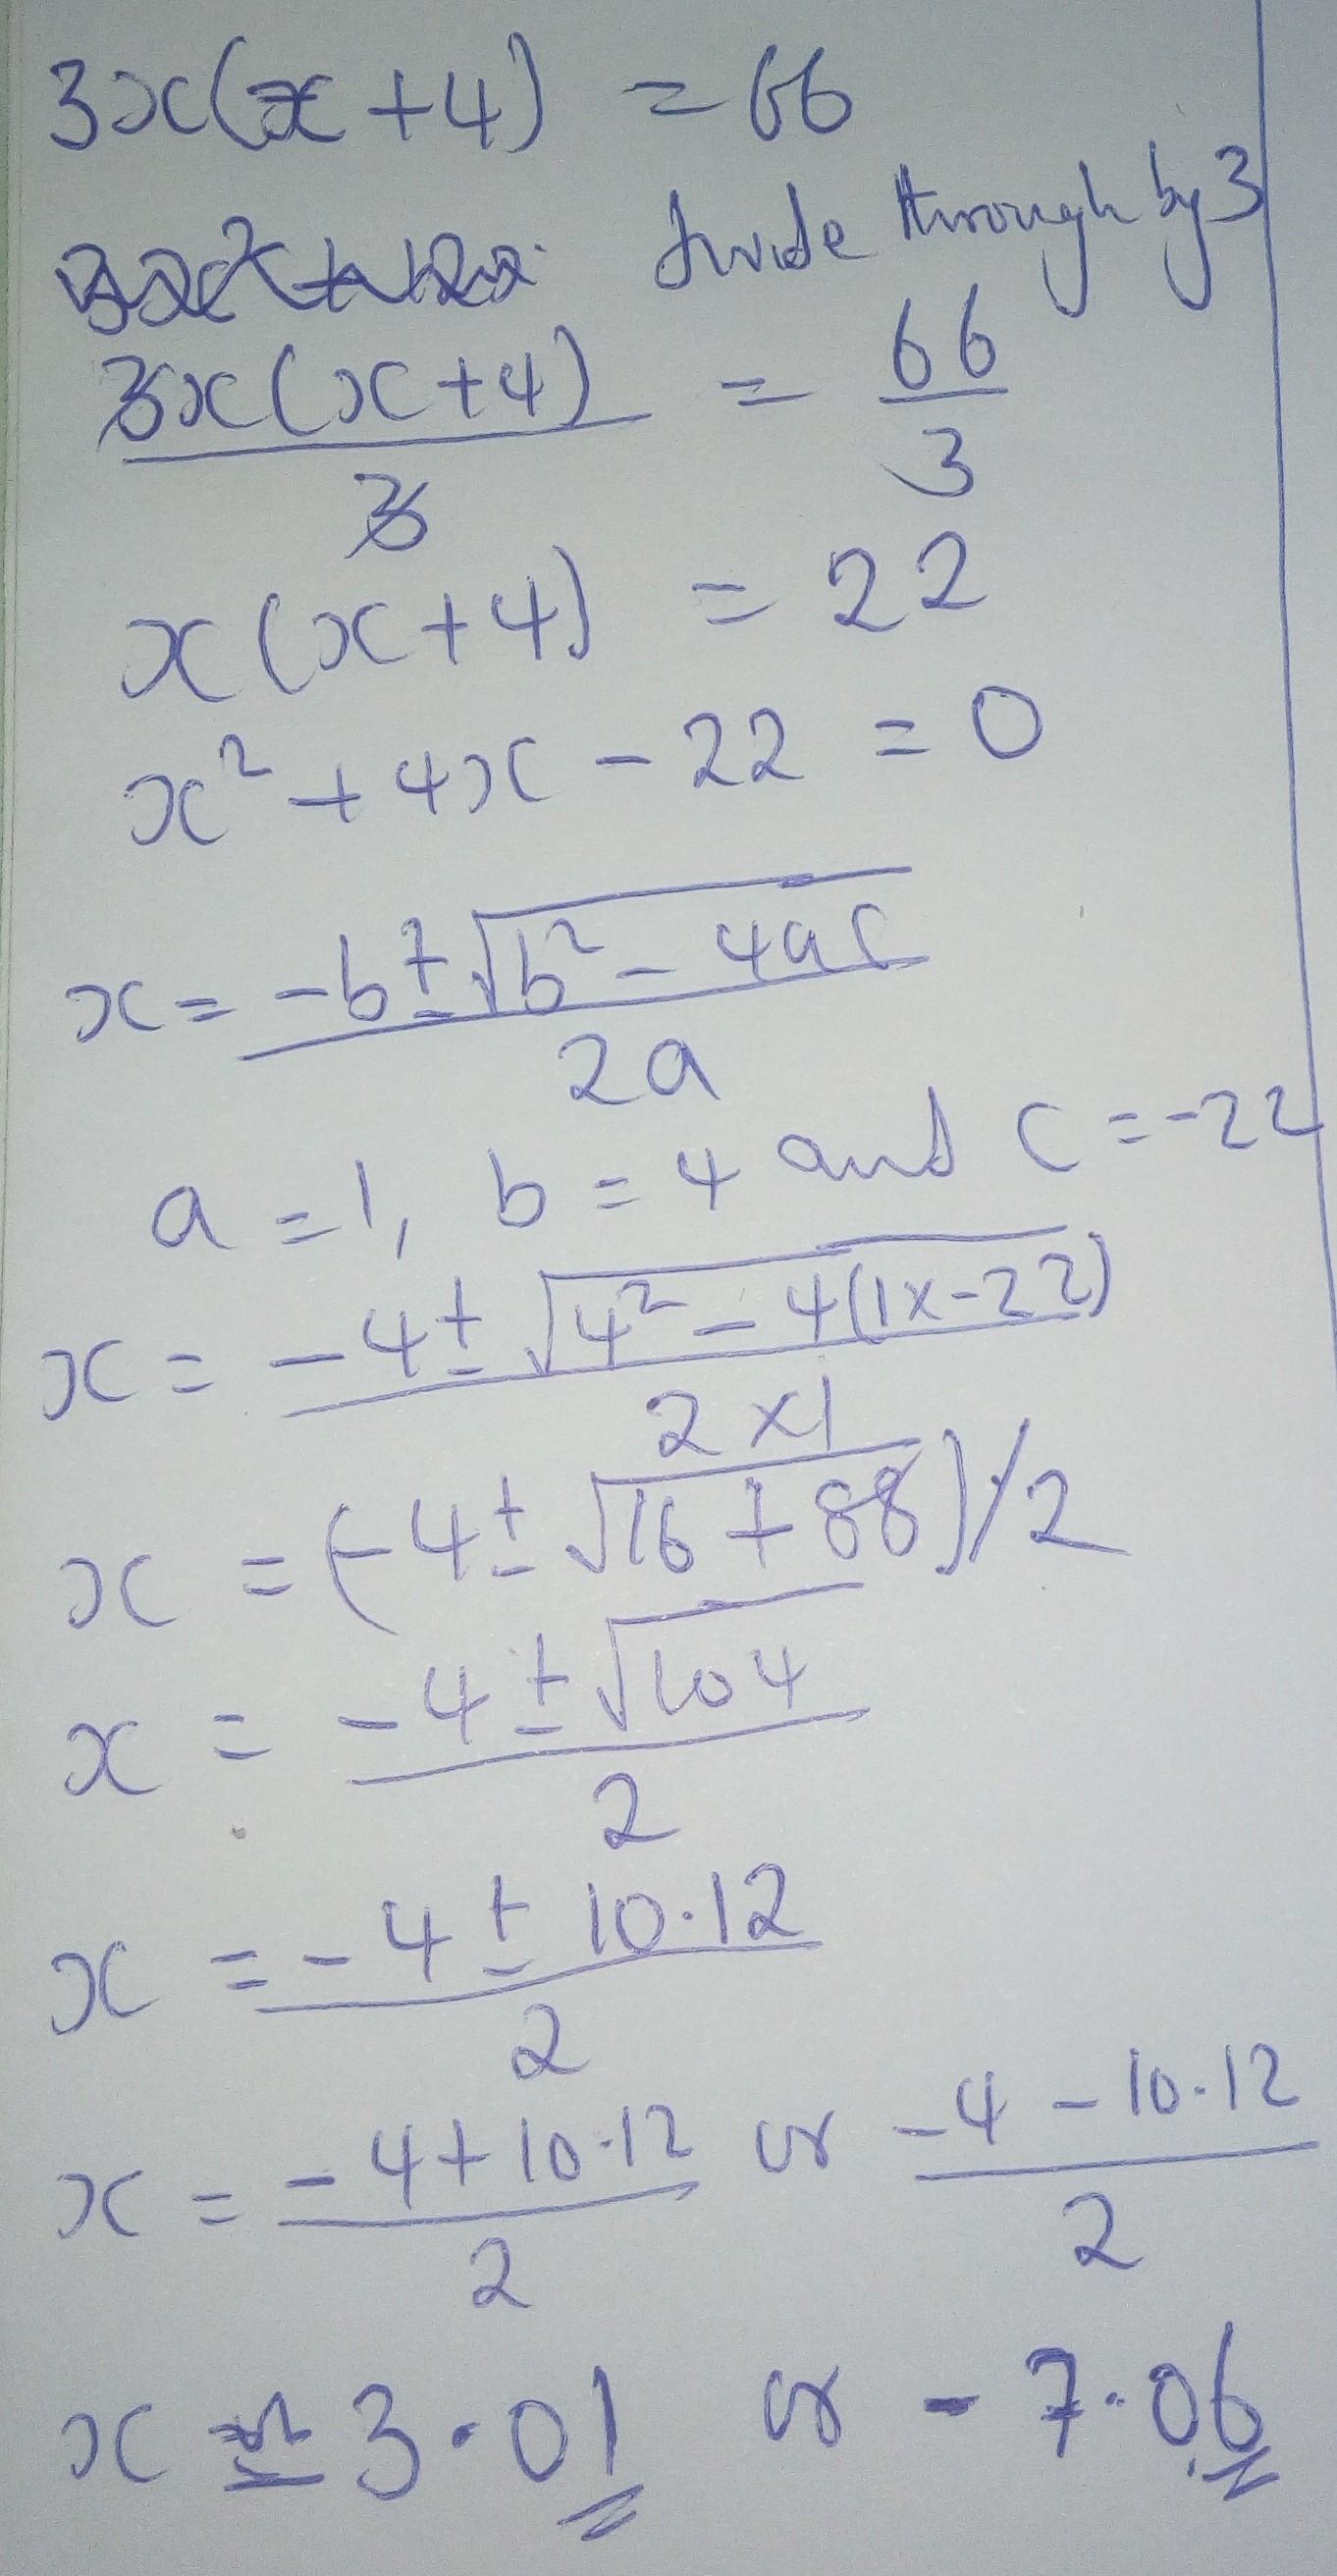 3x(x+4) = 66
3x² + 12x divide through by 3
3x(x+4)/3 = 66/3
x(x+4) = 22
x² + 4x - 22 = 0
x = -b ± √b² - 4ac / 2a
a = 1, b = 4 and c = -22
x = -4 ± √4² - 4(1x-22) / 2×1
x = (-4 ± √16 + 88)/2
x = -4 ± √104 / 2
x = -4 ± 10.12 / 2
x = -4 + 10.12 / 2 or -4 - 10.12 / 2
x = 3.01 or -7.06